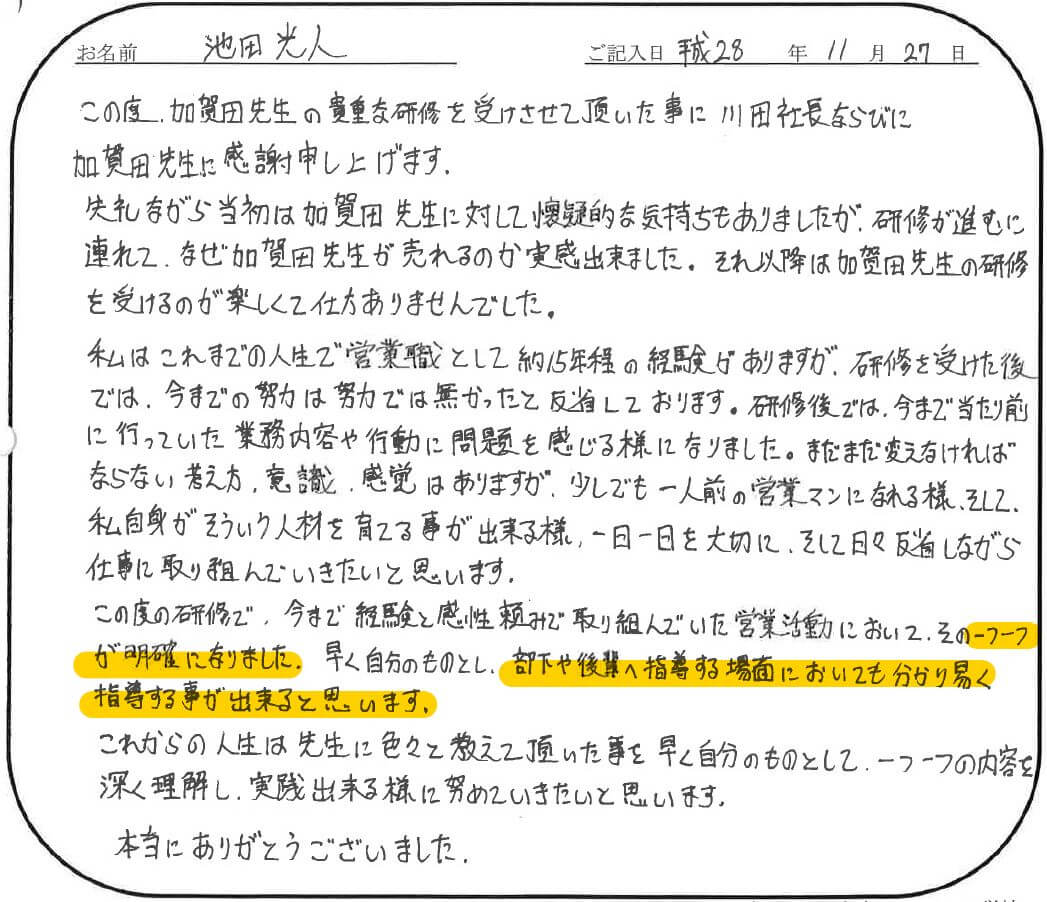 お名前 池田光人 ご記入日 平成28 年 11 月 27 日
この度、加賀田先生の貴重な研修を受けさせて頂いた事に川田社長ならびに
加賀田先生に感謝申し上げます。
失礼ながら当初は加賀田先生に対して懐疑的な気持ちもありましたが、研修が進むに
連れて、なぜ加賀田先生が売れるのか実感出来ました。それ以降は加賀田先生の研修
を受けるのが楽しくて仕方ありませんでした。
私はこれまでの人生で営業職として約15年程の経験がありますが、研修を受けた後
では、今までの努力は努力では無かったと反省しております。研修後では、今まで当たり前
に行っていた業務内容や行動に問題を感じる様になりました。まだまだ変えなければ
ならない考え方、意識、感覚はありますが、少しでも一人前の営業マンになれる様、そして、
私自身がそういう人材を育てる事が出来る様、一日一日を大切に、そして日々反省しながら
仕事に取り組んでいきたいと思います。
この度の研修で、今まで経験と感性頼みで取り組んでいた営業活動において、その一つ一つ
が明確になりました。早く自分のものとし、部下や後輩へ指導する場面においても分かり易く
指導する事が出来ると思います。
これからの人生は先生に色々と教えて頂いた事を早く自分のものとして、一つ一つの内容を
深く理解し、実践出来る様に努めていきたいと思います。
本当にありがとうございました。